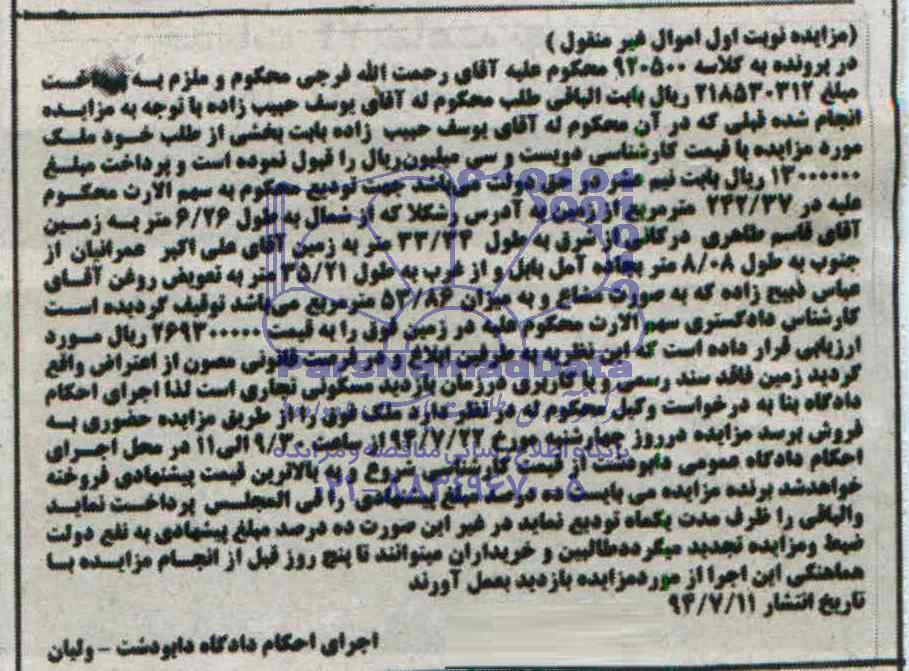 (مزایده نوبت اول اموال غیر منقول)
در پرونده به کلاسه ۹۲۰۵۰۰ محکوم علیه آقای رحمت الله فرجی محکوم و ملزم به پرداخت
مبلغ ۲۱۸۵۳۰۳۱۲ ریال بابت الباقی طلب محکوم له آقای یوسف حبیب زاده با توجه به مزایده
انجام شده قبلی که در آن محکوم له آقای یوسف حبیب زاده بابت بخشی از طلب خود ملک
مورد مزایده با قیمت کارشناسی دویست و سی میلیون‌ریال را قبول نموده است و پرداخت مبلغ
۱۳۰۰۰۰۰۰ ریال بابت نیم عشر در حق دولت می‌باشد جهت تودیع محکوم به سهم الارث محکوم
علیه در ۲۴۲/۳۷ مترمربع از زمین به آدرس رشکلا که از شمال به طول ۶/۲۶ متر به زمین
آقای قاسم طاهری درکانی از شرق به طول ۳۳/۳۴ متر به زمین آقای علی اکبر عمرانیان از
جنوب به طول ۸/۰۸ متر بجاده آمل بابل و از غرب به طول ۳۵/۲۱ متر به تعویض روغن آقای
عباس ذبیح زاده که به صورت مشاع و به میزان ۵۳/۸۶ مترمربع می‌باشد توقیف گردیده است
کارشناس دادگستری سهم الارث محکوم علیه در زمین فوق را به قیمت ۲۶۹۳۰۰۰۰۰ ریال مورد
ارزیابی قرار داده است که این نظریه به طرفین ابلاغ و در فرصت قانونی مصون از اعتراض واقع
گردید زمین فاقد سند رسمی و با کاربری درزمان بازدید مسکونی تجاری است لذا اجرای احکام
دادگاه بنا به درخواست وکیل محکوم له در نظر دارد ملک فوق را از طریق مزایده حضوری به
فروش برسد مزایده درروز چهارشنبه مورخ ۹۴/۷/۲۲ از ساعت ۹/۳۰ الی۱۱ در محل اجرای
احکام دادگاه عمومی دابودشت از قیمت کارشناسی شروع و به بالاترین قیمت پیشنهادی فروخته
خواهدشد برنده مزایده می بایست ده درصد مبلغ پیشنهادی را فی المجلس پرداخت نماید
والباقی را ظرف مدت یکماه تودیع نماید در غیر این صورت ده درصد مبلغ پیشنهادی به نفع دولت
ضبط ومزایده تجدید میگرددطالبین و خریداران میتوانند تا پنج روز قبل از انجام مزایده با
هماهنگی این اجرا از موردمزایده بازدید بعمل آورند
تاریخ انتشار ۹۴/۷/۱۱
اجرای احکام دادگاه دابودشت - ولیان
ParsNamadData
پایگاه اطلاع رسانی مناقصه و مزایده
۰۲۱-۸۸۳۴۹۶۷۰-۵